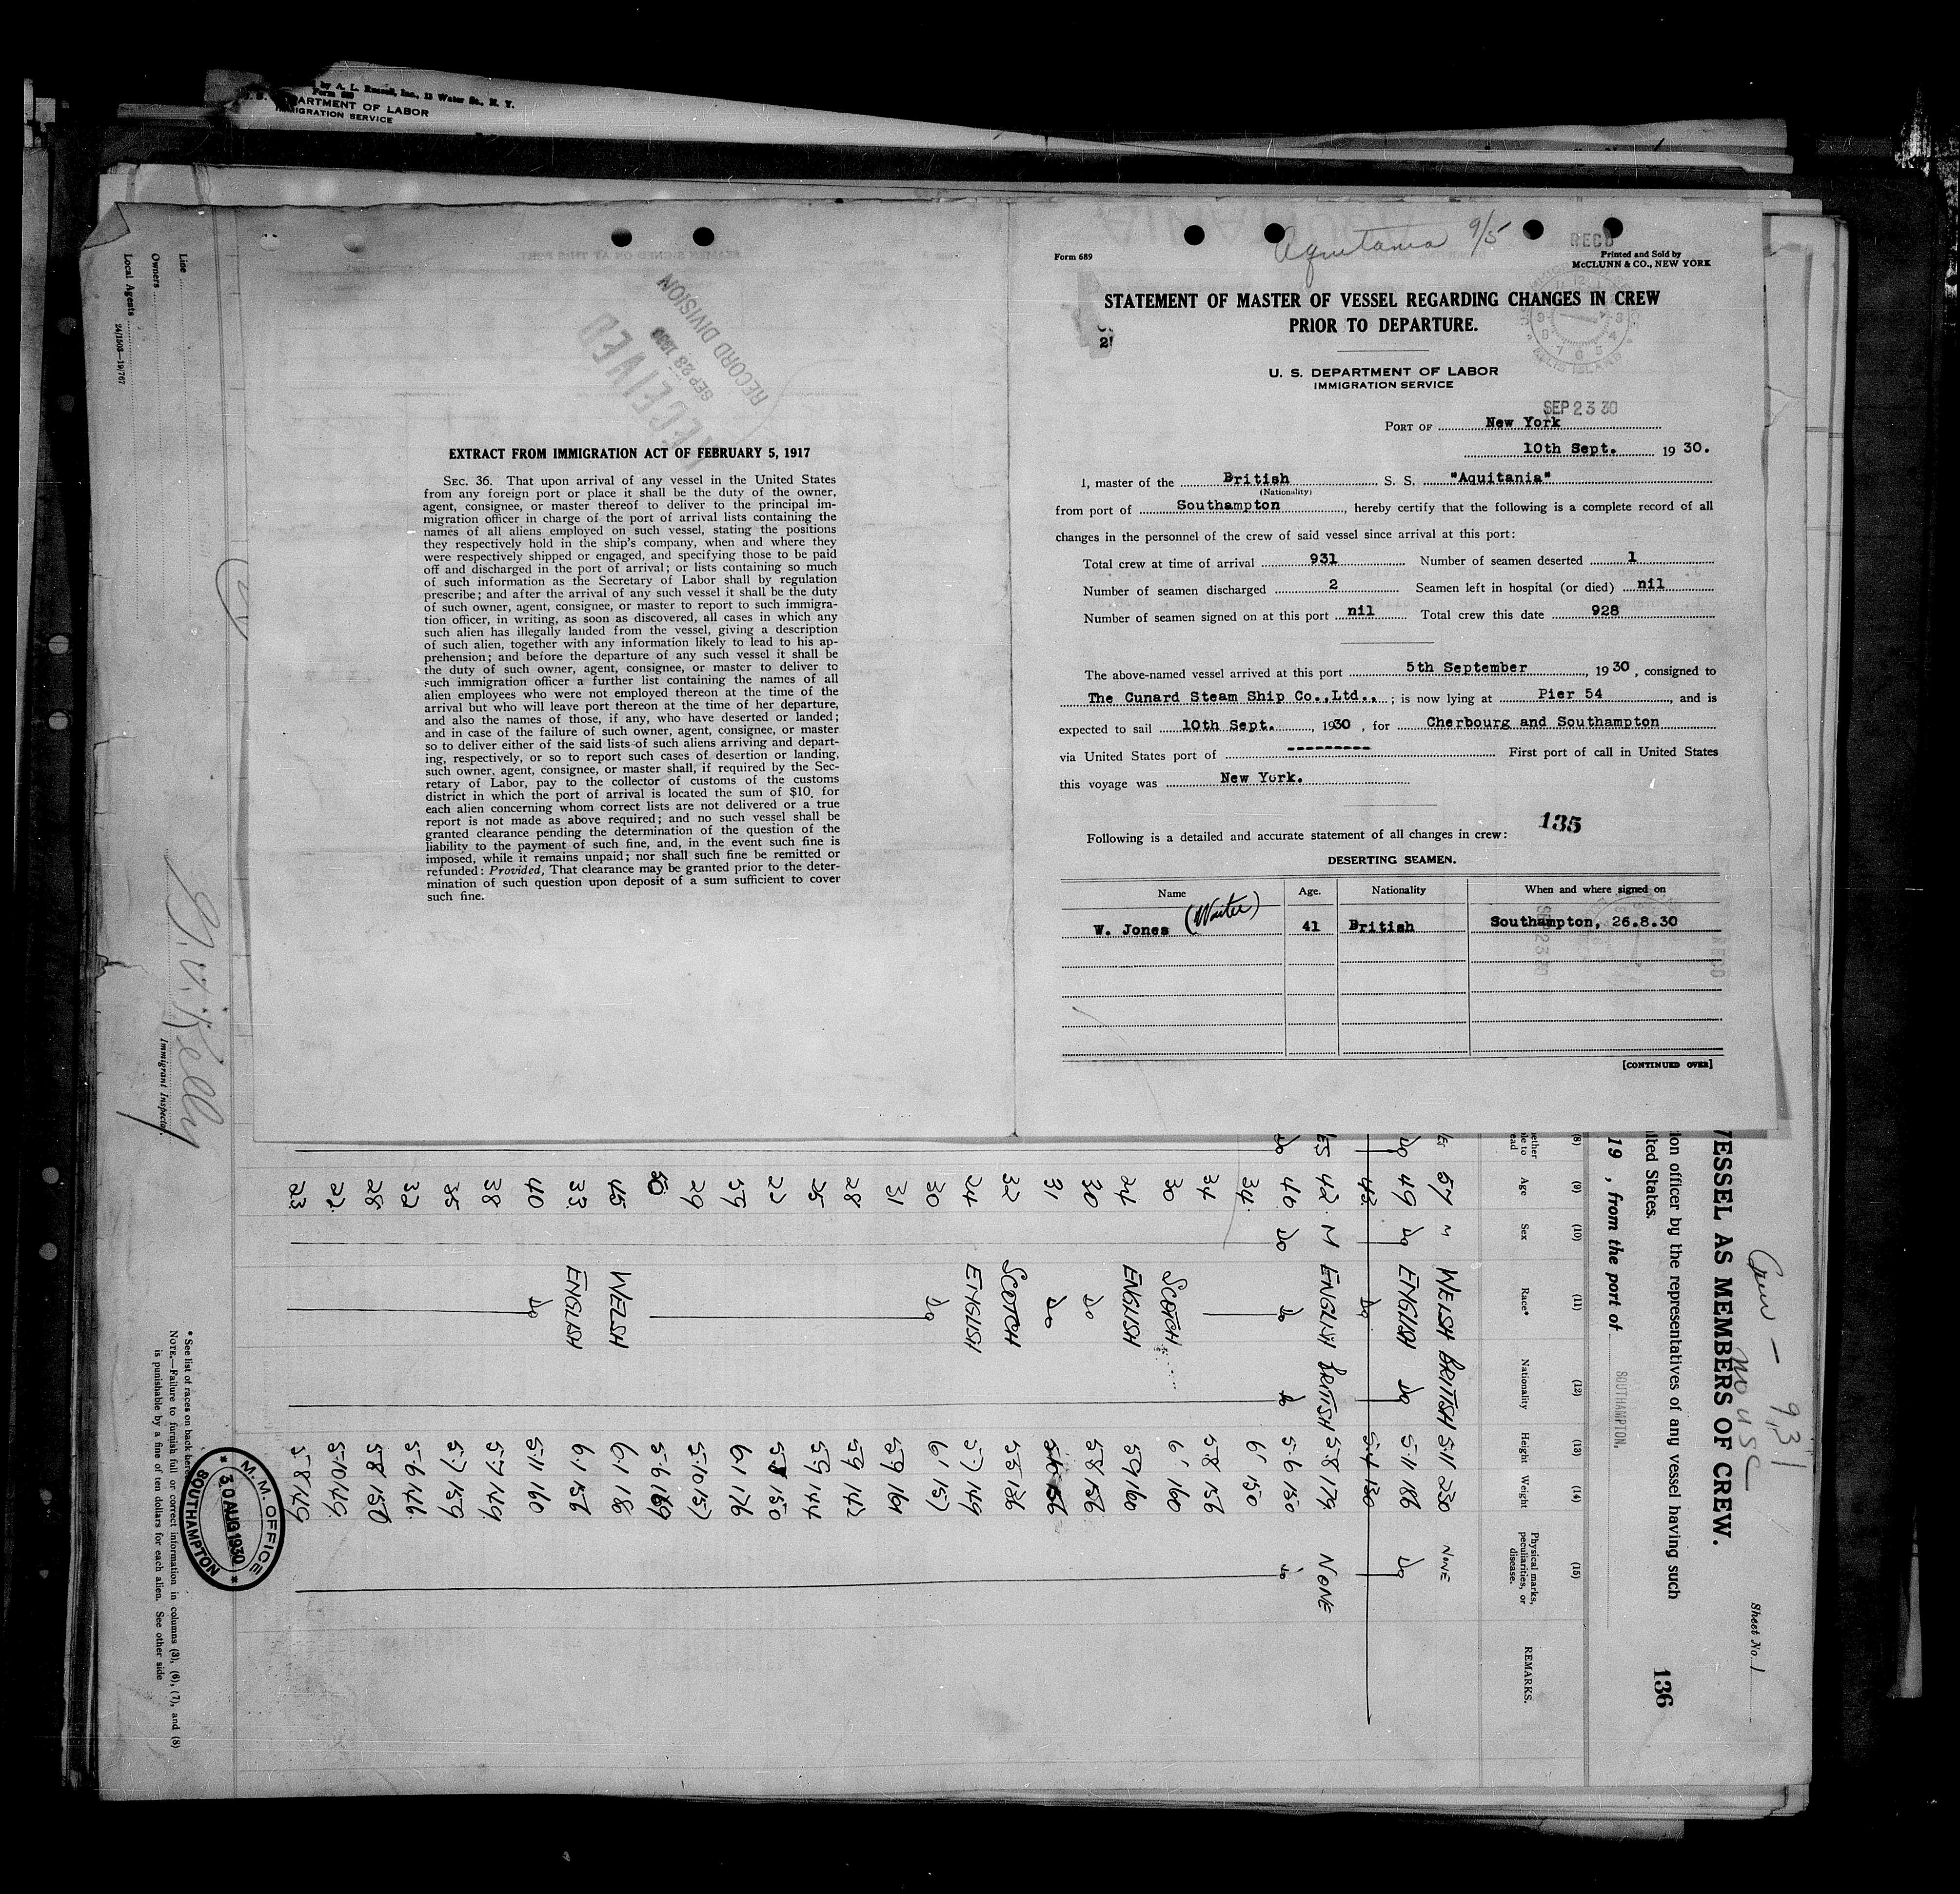 by A. L. Russell, Inc., 12 Water St., N. Y.
Form 689
DEPARTMENT OF LABOR
IMMIGRATION SERVICE
Line
Owners
Local Agents
24/1508—19/767
Immigrant Inspector.
RECEIVED
SEP 23 1930
RECORD DIVISION
EXTRACT FROM IMMIGRATION ACT OF FEBRUARY 5, 1917
SEC. 36. That upon arrival of any vessel in the United States
from any foreign port or place it shall be the duty of the owner,
agent, consignee, or master thereof to deliver to the principal im-
migration officer in charge of the port of arrival lists containing the
names of all aliens employed on such vessel, stating the positions
they respectively hold in the ship's company, when and where they
were respectively shipped or engaged, and specifying those to be paid
off and discharged in the port of arrival; or lists containing so much
of such information as the Secretary of Labor shall by regulation
prescribe; and after the arrival of any such vessel it shall be the duty
of such owner, agent, consignee, or master to report to such immigra-
tion officer, in writing, as soon as discovered, all cases in which any
such alien has illegally landed from the vessel, giving a description
of such alien, together with any information likely to lead to his ap-
prehension; and before the departure of any such vessel it shall be
the duty of such owner, agent, consignee, or master to deliver to
such immigration officer a further list containing the names of all
alien employees who were not employed thereon at the time of the
arrival but who will leave port thereon at the time of her departure,
and also the names of those, if any, who have deserted or landed;
and in case of the failure of such owner, agent, consignee, or master
so to deliver either of the said lists of such aliens arriving and depart-
ing, respectively, or so to report such cases of desertion or landing,
such owner, agent, consignee, or master shall, if required by the Sec-
retary of Labor, pay to the collector of customs of the customs
district in which the port of arrival is located the sum of $10. for
each alien concerning whom correct lists are not delivered or a true
report is not made as above required; and no such vessel shall be
granted clearance pending the determination of the question of the
liability to the payment of such fine, and, in the event such fine is
imposed, while it remains unpaid; nor shall such fine be remitted or
refunded: Provided, That clearance may be granted prior to the deter-
mination of such question upon deposit of a sum sufficient to cover
such fine.
Aquitania 9/5
Form 689
REC'D
Printed and Sold by
McCLUNN & CO., NEW YORK
STATEMENT OF MASTER OF VESSEL REGARDING CHANGES IN CREW
PRIOR TO DEPARTURE.
ELLIS ISLAND
U. S. DEPARTMENT OF LABOR
IMMIGRATION SERVICE
SEP 23 30
PORT OF New York
10th Sept. 1930.
I, master of the British S. S. "Aquitania"
(Nationality)
from port of Southampton, hereby certify that the following is a complete record of all
changes in the personnel of the crew of said vessel since arrival at this port:
Total crew at time of arrival 931 Number of seamen deserted 1
Number of seamen discharged 2 Seamen left in hospital (or died) nil
Number of seamen signed on at this port nil Total crew this date 928
The above-named vessel arrived at this port 5th September, 1930, consigned to
The Cunard Steam Ship Co.,Ltd.,; is now lying at Pier 54, and is
expected to sail 10th Sept., 1930, for Cherbourg and Southampton
via United States port of --------- First port of call in United States
this voyage was New York.
135
Following is a detailed and accurate statement of all changes in crew:
DESERTING SEAMEN.
Name Age. Nationality When and where signed on
W. Jones (Waiter) 41 British Southampton, 26.8.30
[CONTINUED OVER]
Crew - 931
no usc
Sheet No. 1
136
VESSEL AS MEMBERS OF CREW.
ion officer by the representatives of any vessel having such
ited States.
19 , from the port of SOUTHAMPTON.
(8) (9) (10) (11) (12) (13) (14) (15)
Age Sex Race* Nationality Height Weight Physical marks, peculiarities, or disease. REMARKS.
57 M WELSH BRITISH 5-11 230 NONE
Do 49 Do ENGLISH Do 5-11 186 Do
43 Do 5-4 130
42 M ENGLISH BRITISH 5-8 179 NONE
Do 46 Do Do Do 5-6 150 Do
34 6' 150
34 5-8 156
30 SCOTCH 6' 160
24 ENGLISH 5-9 160
30 Do 5-8 156
31 Do
32 SCOTCH 5-5 136
24 ENGLISH 5-7 149
30 Do 6' 157
31 5-9 161
28 5-9 142
25 5-9 144
22 150
59 6-1 176
29 5-10 157
50 5-6 169
45 WELSH 6-1 186
33 ENGLISH 6-1 156
40 Do 5-11 160
38 5-7 149
35 5-7 159
32 5-6 146
28 5-8 150
22 5-10 149
23 5-8 149
* See list of races on back here
NOTE.—Failure to furnish full or correct information in columns (3), (6), (7), and (8)
is punishable by a fine of ten dollars for each alien. See other side
M. M. OFFICE
30 AUG 1930
SOUTHAMPTON